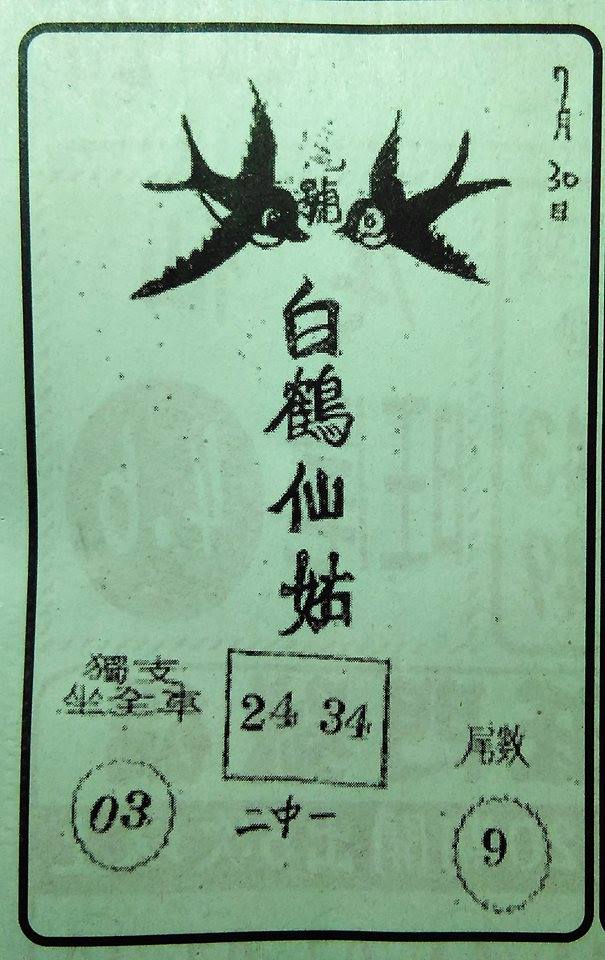 7月30日
號
白鶴仙姑
獨支
坐全車
03
24 34
二中一
尾數
9